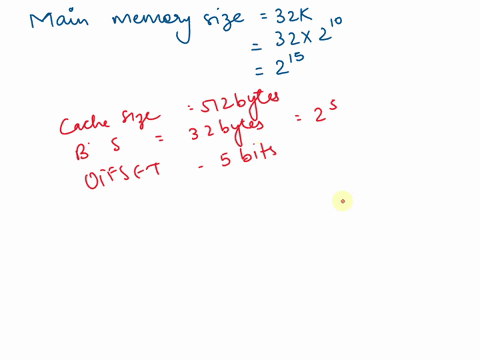 Main memory size = 32K
= 32 × 2^10
= 2^15
Cache size = 512 bytes
B S = 32 bytes = 2^5
OFFSET - 5 bits